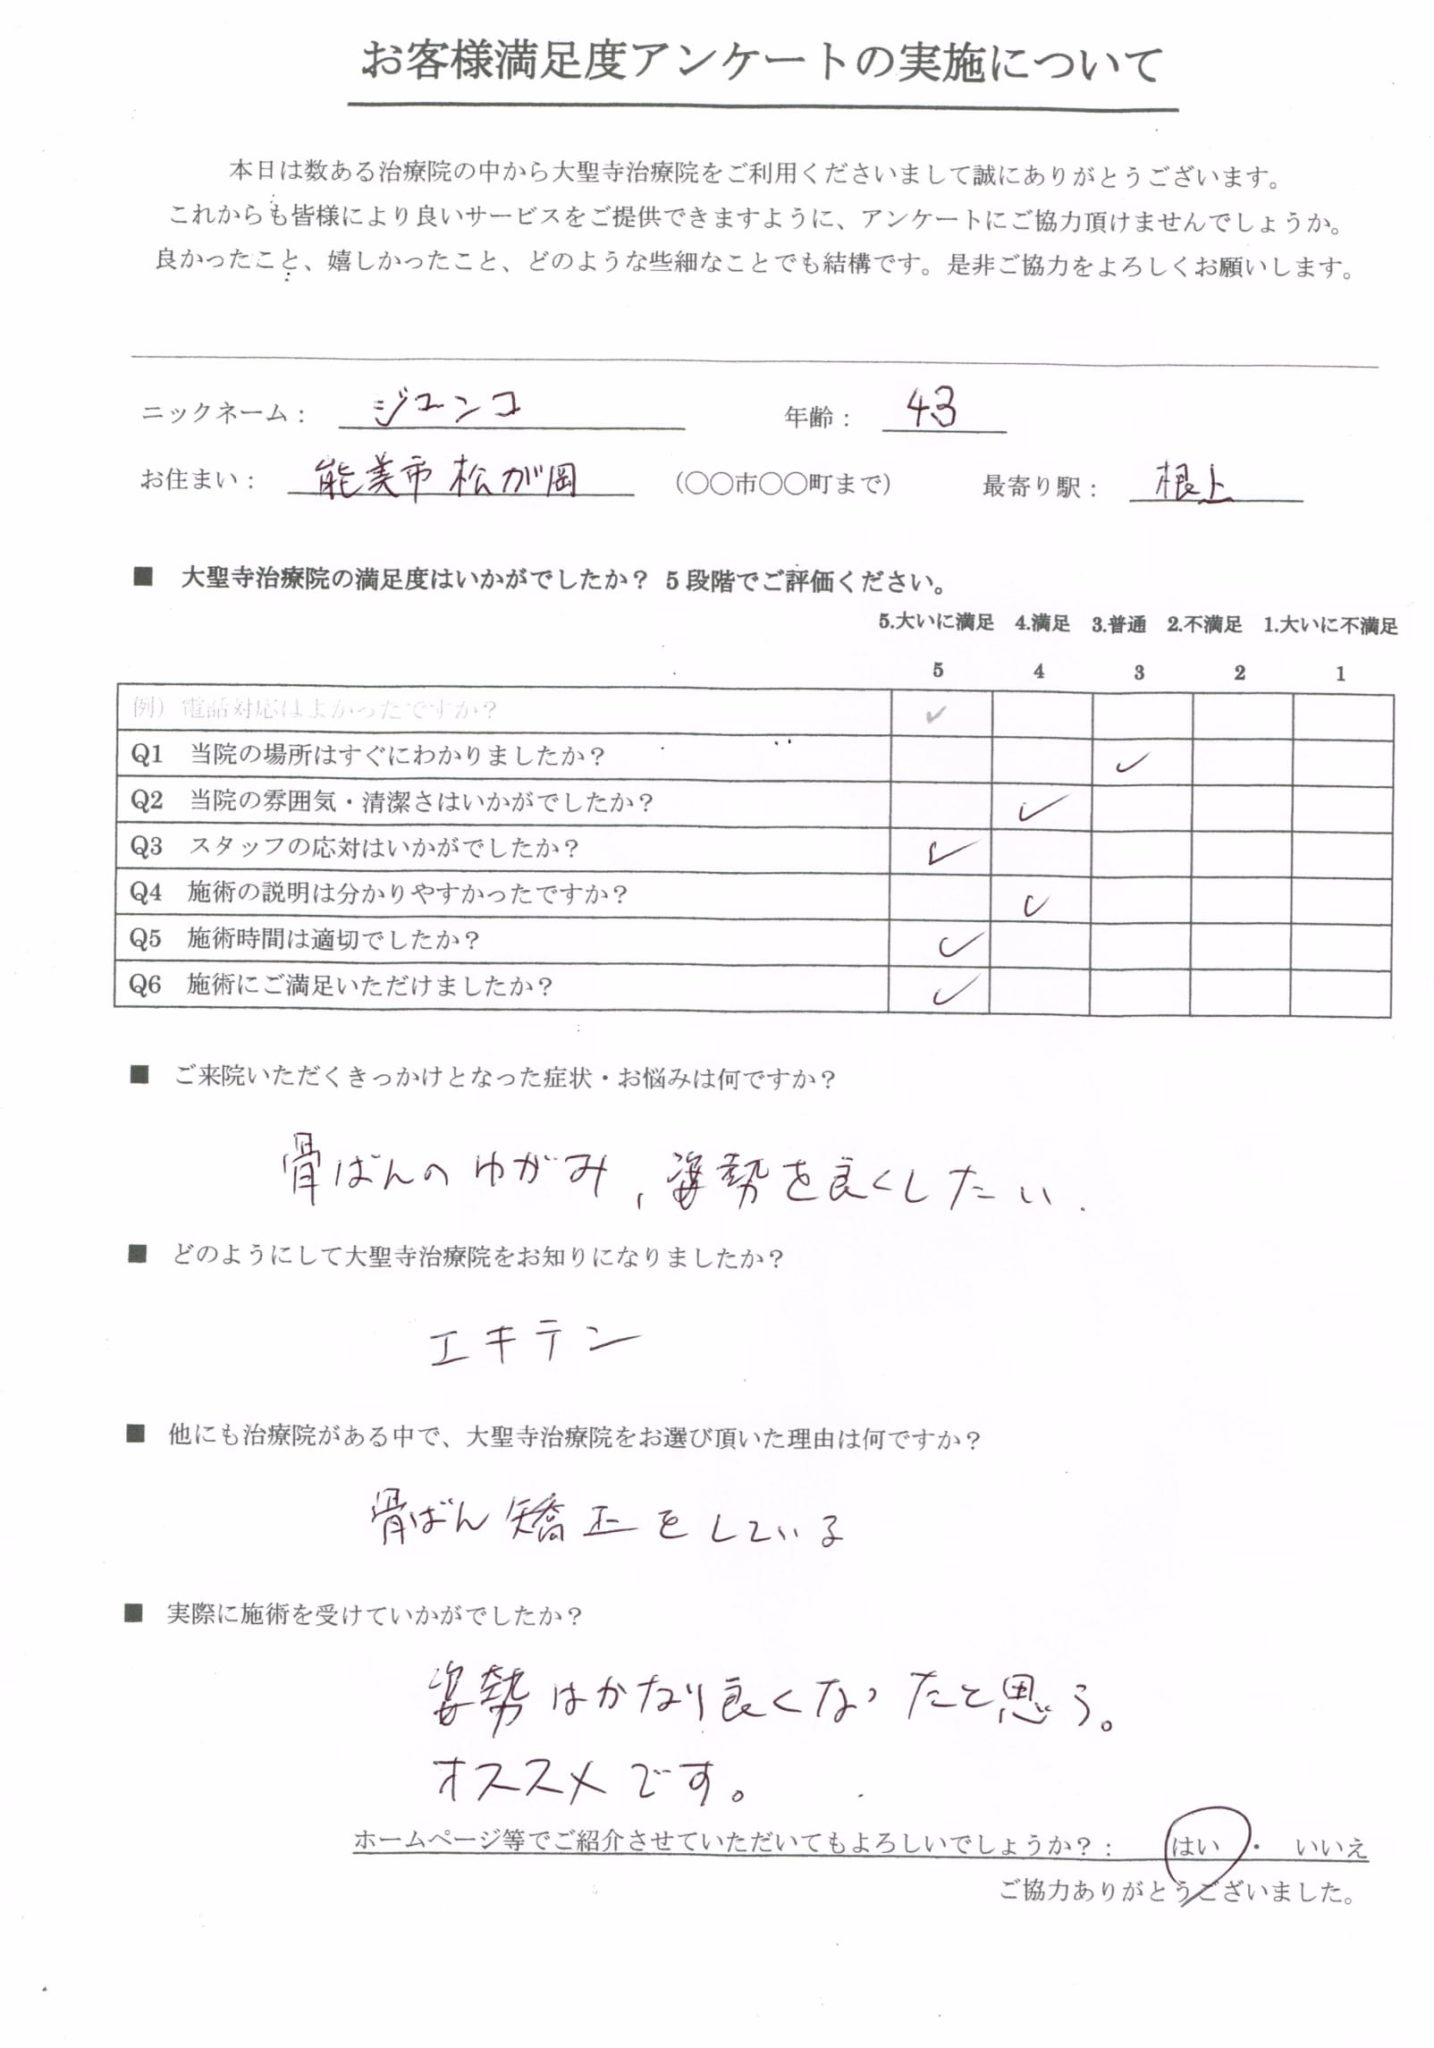 お客様満足度アンケートの実施について
本日は数ある治療院の中から大聖寺治療院をご利用くださいまして誠にありがとうございます。
これからも皆様により良いサービスをご提供できますように、アンケートにご協力頂けませんでしょうか。
良かったこと、嬉しかったこと、どのような些細なことでも結構です。是非ご協力をよろしくお願いします。
ニックネーム： ジュンコ 年齢： 43
お住まい： 能美市松が岡 （○○市○○町まで） 最寄り駅： 根上
■ 大聖寺治療院の満足度はいかがでしたか？ 5段階でご評価ください。
5.大いに満足 4.満足 3.普通 2.不満足 1.大いに不満足
5 4 3 2 1
例）電話対応はよかったですか？ ✓
Q1 当院の場所はすぐにわかりましたか？ ✓
Q2 当院の雰囲気・清潔さはいかがでしたか？ ✓
Q3 スタッフの応対はいかがでしたか？ ✓
Q4 施術の説明は分かりやすかったですか？ ✓
Q5 施術時間は適切でしたか？ ✓
Q6 施術にご満足いただけましたか？ ✓
■ ご来院いただくきっかけとなった症状・お悩みは何ですか？
骨ばんのゆがみ、姿勢を良くしたい.
■ どのようにして大聖寺治療院をお知りになりましたか？
エキテン
■ 他にも治療院がある中で、大聖寺治療院をお選び頂いた理由は何ですか？
骨ばん矯正をしている
■ 実際に施術を受けていかがでしたか？
姿勢はかなり良くなったと思う。
オススメです。
ホームページ等でご紹介させていただいてもよろしいでしょうか？： はい ・ いいえ
ご協力ありがとうございました。